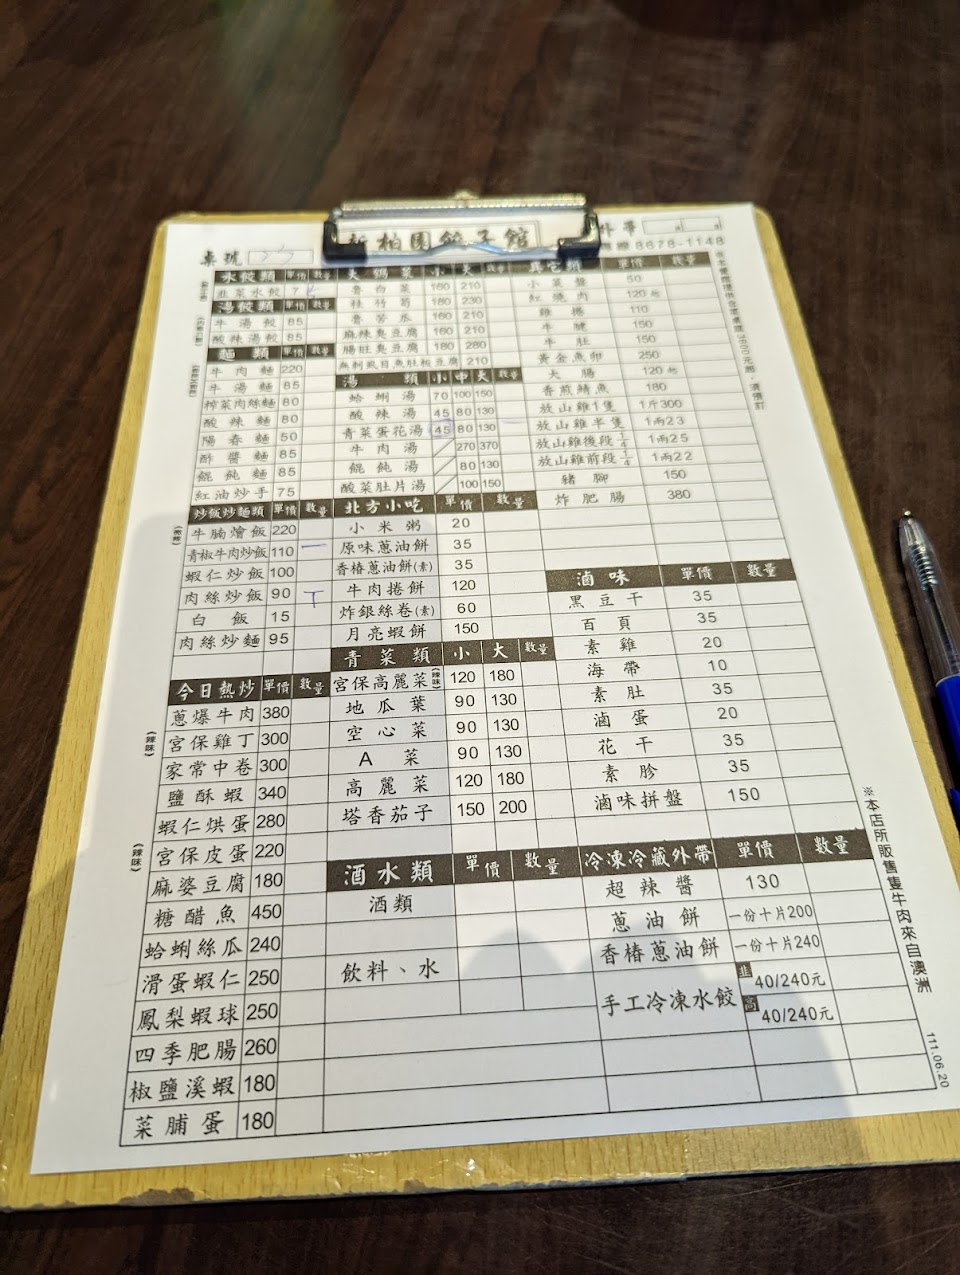 新柏園餃子館
外帶
桌號
專線8678-1148
水餃類 單價 數量
韭菜水餃 7
湯餃類 單價 數量
牛湯餃 85
酸辣湯餃 85
麵類 單價 數量
牛肉麵 220
牛湯麵 85
榨菜肉絲麵 80
酸辣麵 80
陽春麵 50
酢醬麵 85
餛飩麵 85
紅油炒手 75
炒飯炒麵類 單價 數量
牛腩燴飯 220
青椒牛肉炒飯 110 一
蝦仁炒飯 100
肉絲炒飯 90 T
白飯 15
肉絲炒麵 95
今日熱炒 單價 數量
蔥爆牛肉 380
(辣味) 宮保雞丁 300
家常中卷 300
鹽酥蝦 340
蝦仁烘蛋 280
(辣味) 宮保皮蛋 220
麻婆豆腐 180
糖醋魚 450
蛤蜊絲瓜 240
滑蛋蝦仁 250
鳳梨蝦球 250
四季肥腸 260
椒鹽溪蝦 180
菜脯蛋 180
大鍋菜 小 大 數量
魯白菜 160 210
桂竹筍 180 230
魯苦瓜 160 210
麻辣臭豆腐 160 210
腸旺臭豆腐 180 280
無刺虱目魚肚板豆腐 210
湯類 小 中 大 數量
蛤蜊湯 70 100 150
酸辣湯 45 80 130
青菜蛋花湯 45 80 130
牛肉湯 270 370
餛飩湯 80 130
酸菜肚片湯 100 150
北方小吃 單價 數量
小米粥 20
原味蔥油餅 35
香椿蔥油餅(素) 35
牛肉捲餅 120
炸銀絲卷(素) 60
月亮蝦餅 150
青菜類 小 大 數量
宮保高麗菜(辣味) 120 180
地瓜葉 90 130
空心菜 90 130
A菜 90 130
高麗菜 120 180
塔香茄子 150 200
酒水類 單價 數量
酒類
飲料、水
其它類 單價 數量
小菜盤 50
紅燒肉 120起
雞捲 110
牛腱 150
牛肚 150
黃金魚卵 250
大腸 120起
香煎鯖魚 180
放山雞1隻 1斤300
放山雞半隻 1兩23
放山雞後段1/4 1兩25
放山雞前段1/4 1兩22
豬腳 150
炸肥腸 380
滷味 單價 數量
黑豆干 35
百頁 35
素雞 20
海帶 10
素肚 35
滷蛋 20
花干 35
素胗 35
滷味拼盤 150
冷凍冷藏外帶 單價 數量
超辣醬 130
蔥油餅 一份十片200
香椿蔥油餅 一份十片240
手工冷凍水餃 韭 40/240元
高 40/240元
※本店所販售隻牛肉來自澳洲
111.06.20